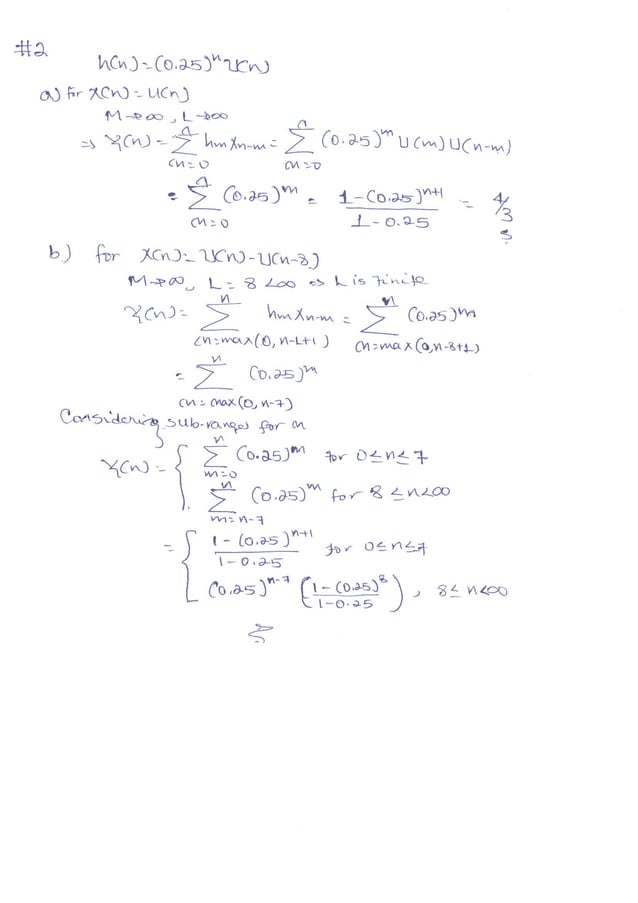 #2
h(n) = (0.25)^n U(n)
a) for x(n) = U(n)
M→∞, L→∞
⇒ y(n) = ∑_{m=0}^{n} h_m x_{n-m} = ∑_{m=0}^{n} (0.25)^m U(m) U(n-m)
= ∑_{m=0}^{n} (0.25)^m = (1-(0.25)^{n+1})/(1-0.25) = 4/3
b) for x(n) = U(n) - U(n-8)
M→∞, L = 8 <∞ ⇒ L is finite
y(n) = ∑_{m=max(0, n-L+1)}^{n} h_m x_{n-m} = ∑_{m=max(0, n-8+1)}^{n} (0.25)^m
= ∑_{m=max(0, n-7)}^{n} (0.25)^m
Considering sub-ranges for m
y(n) = { ∑_{m=0}^{n} (0.25)^m for 0≤n≤7
∑_{m=n-7}^{n} (0.25)^m for 8≤n<∞
= { (1-(0.25)^{n+1})/(1-0.25) for 0≤n≤7
(0.25)^{n-7} ((1-(0.25)^8)/(1-0.25)), 8≤n<∞